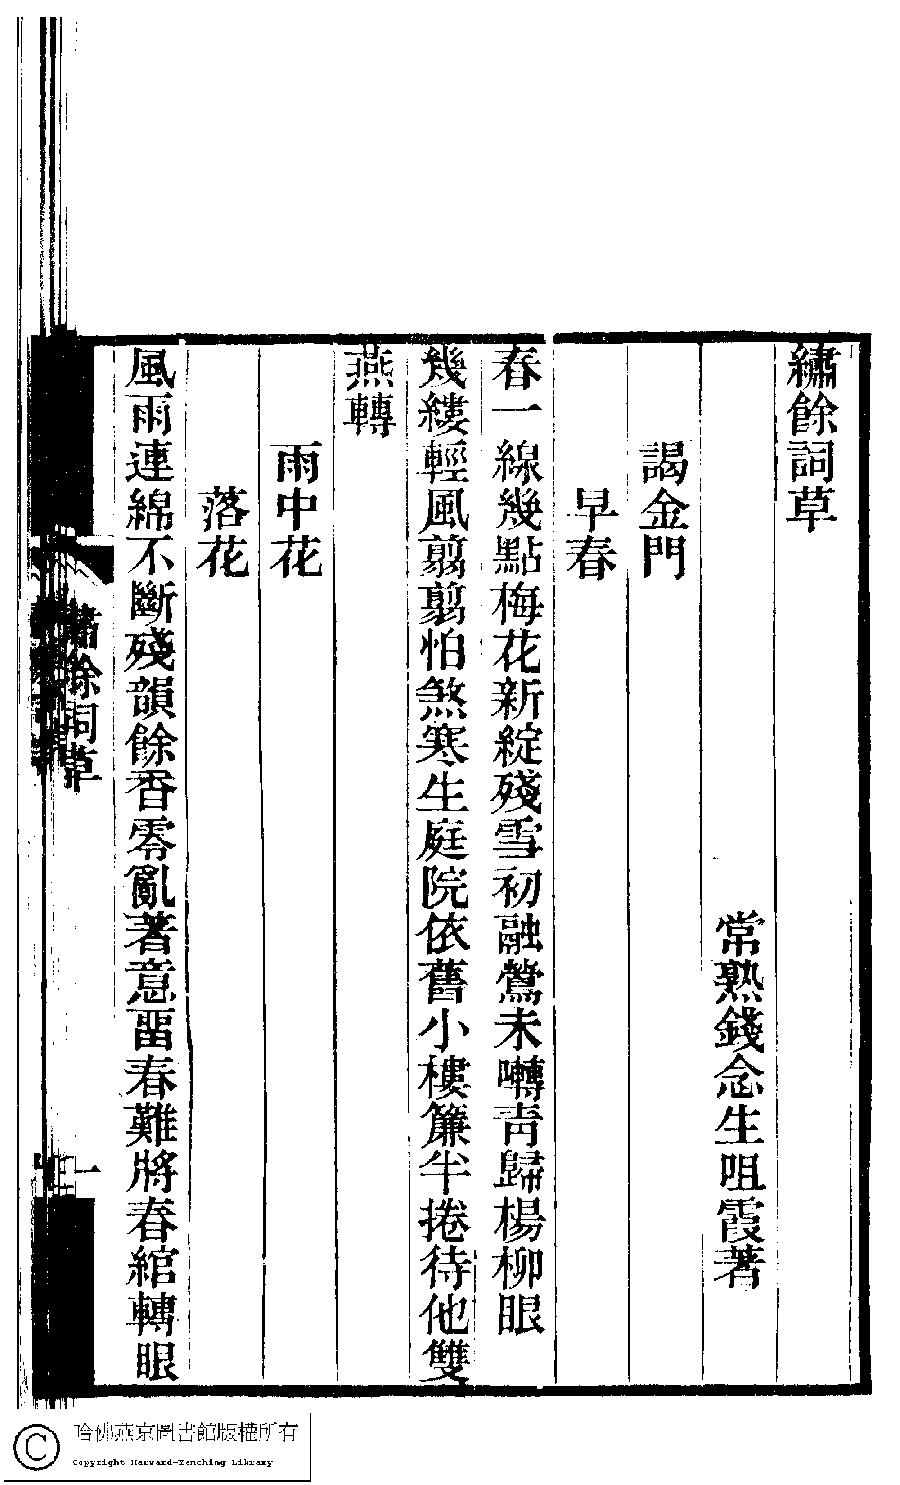 繡餘詞草
常熟錢念生咀霞著
謁金門
早春
春一線幾點梅花新綻殘雪初融鶯未囀靑歸楊柳眼
幾縷輕風翦翦怕煞寒生庭院依舊小樓簾半捲待他雙
燕轉
雨中花
落花
風雨連綿不斷殘韻餘香零亂著意畱春難將春綰轉眼
繡餘詞草
一
哈佛燕京圖書館版權所有
Copyright Harvard-Yenching Library